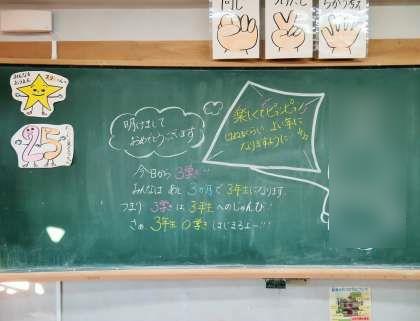 同じ
ちがう考え
みんなも
明けまして
おめでとうございます
楽しくてピョンピョン
はねるくらい よい年に
なりますように
今日から 3学き…
みんなは あと 3カ月で 3年生になります。
つまり 3学き は 3年生 へのじゅんび…
さぁ 3年生 0学き はじまるよー…
25